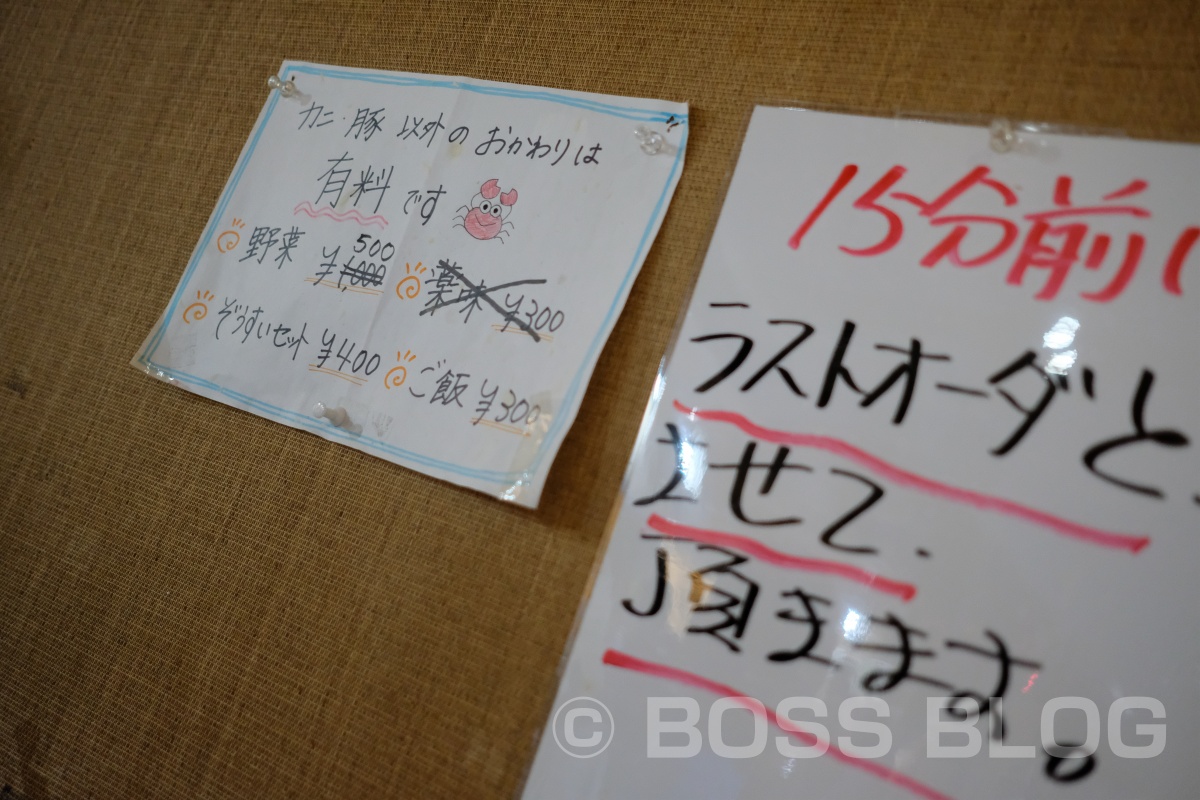 カニ・豚 以外の おかわりは
有料です
野菜 500
¥1,000
薬味 ¥300
ぞうすいセット ¥400
ご飯 ¥300
15分前
ラストオーダーと
させて
頂きます。
© BOSS BLOG